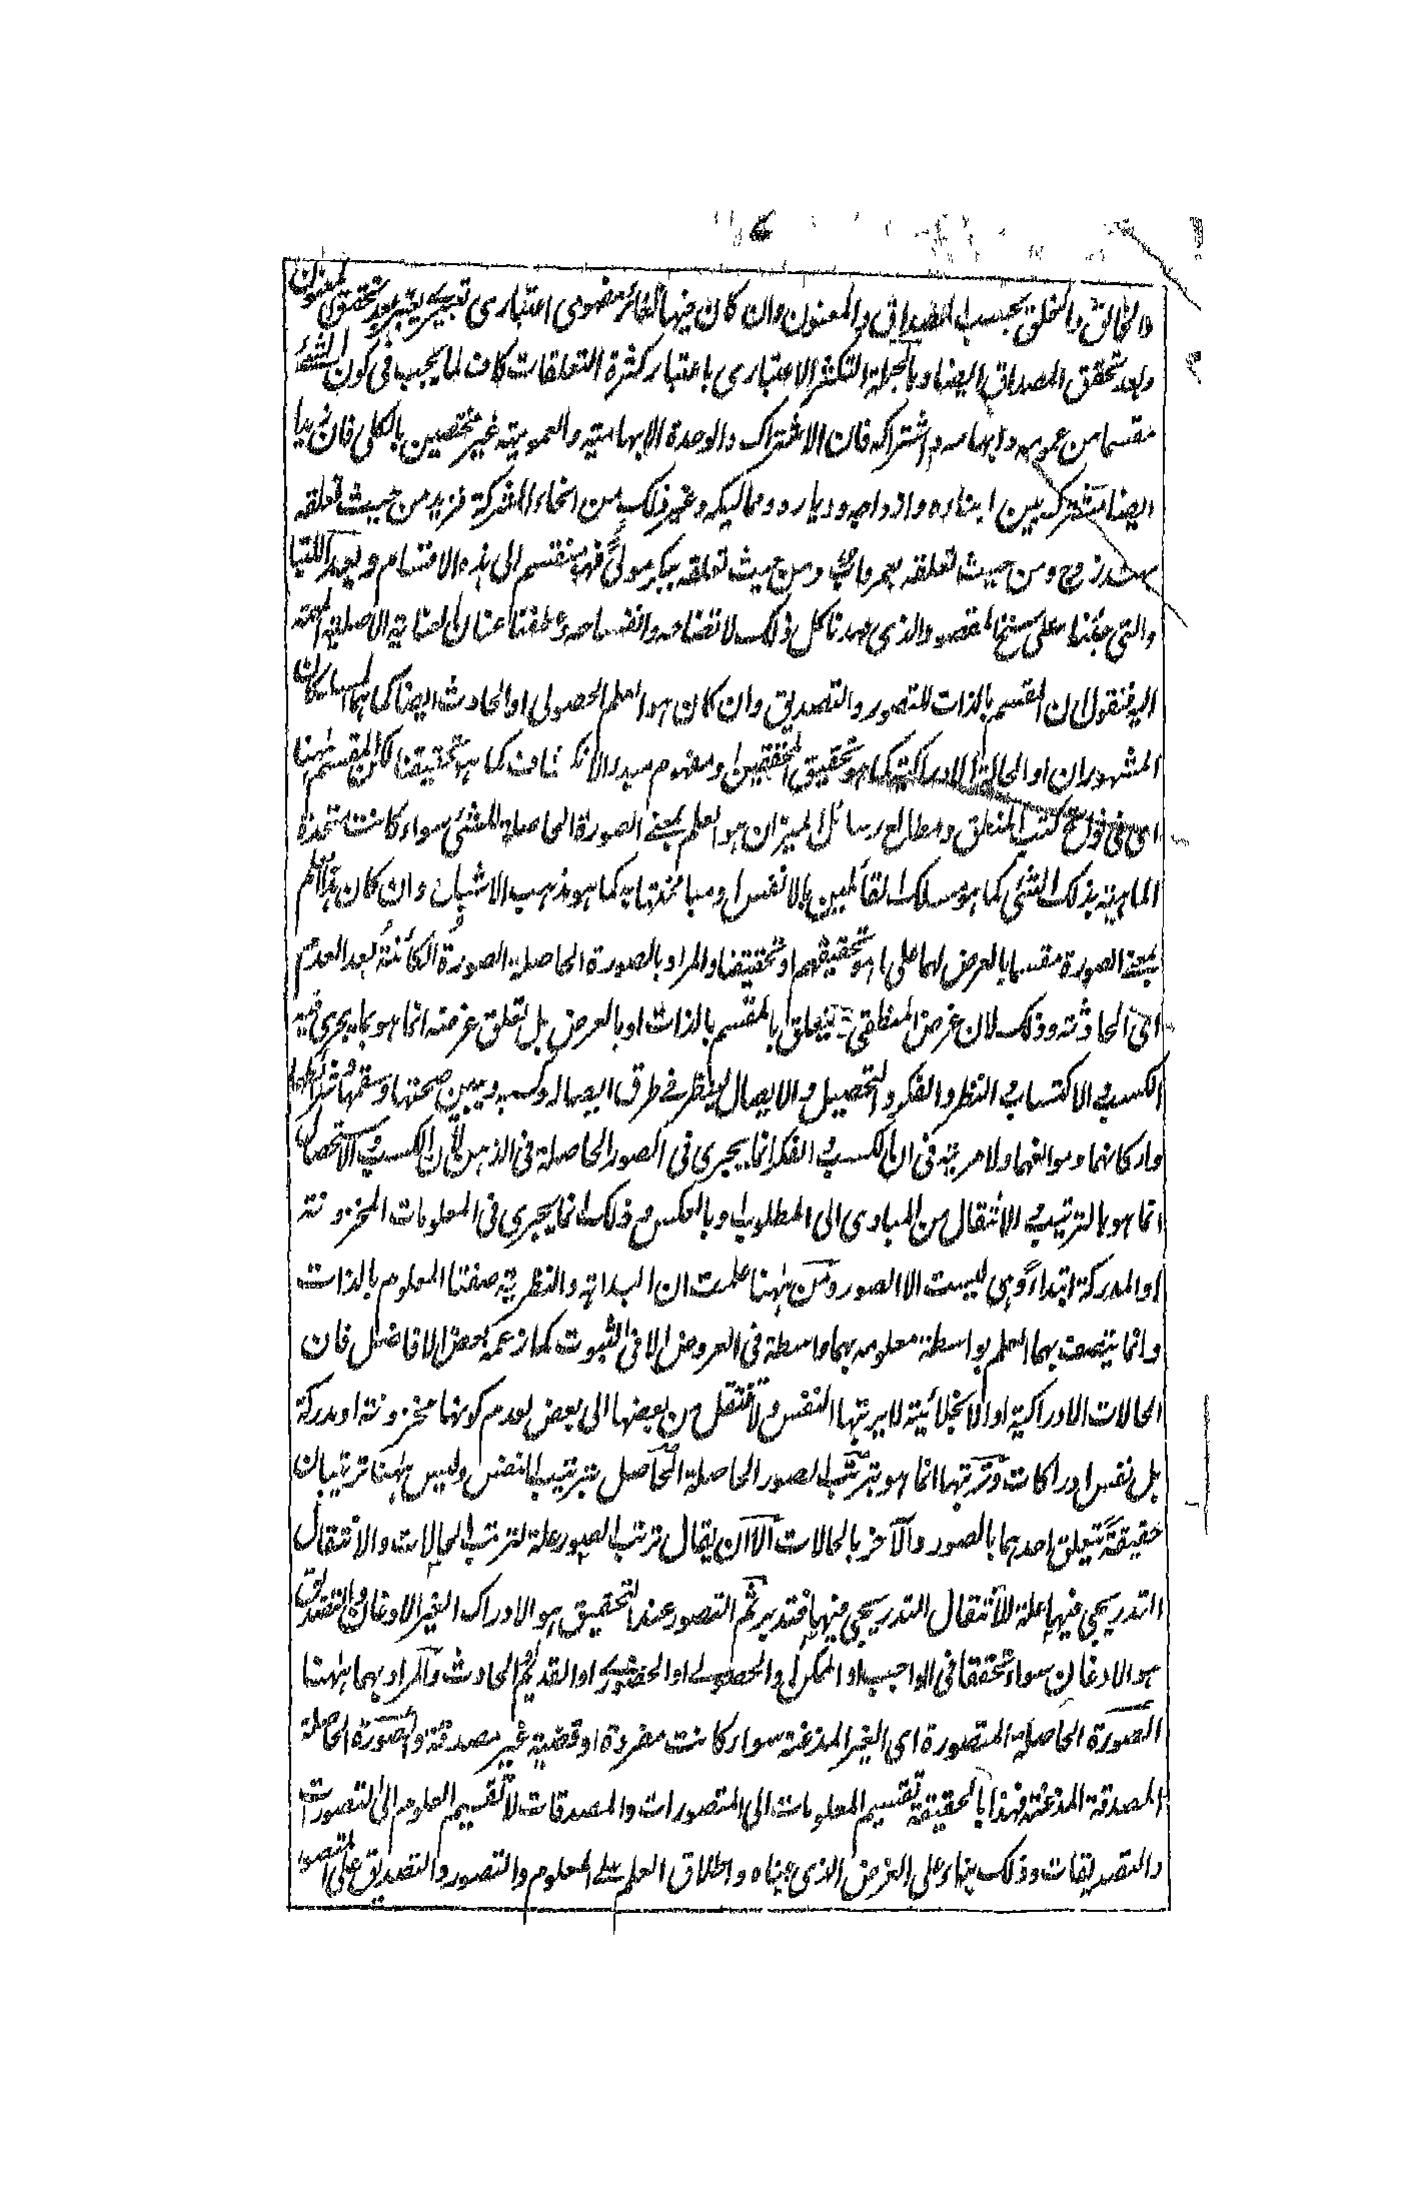 والخالق والخلق بحسب المصداق والمعنون وان كان فيها تغائر مفهومى اعتبارى تعبيرى يعتبر بعد تحقق المعنون
وبعد تحقق المصداق ايضا وبالجملة التكثر الاعتبارى باعتبار كثرة التعلقات كاف لما يجب فى كون الشئ
مقسما من عمومه وابهامه واشتراكه فان الاشتراك والوحدة الابهامية والعمومية غير مختصين بالكلى فان زيدا
ايضا مشترك بين ابنائه وازواجه ودياره ومماليكه وغير ذلك من انحاء الشركة فزيد من حيث تعلقه
بهند زوج ومن حيث تعلقه بعمرو اب ومن حيث تعلقه ببكر مولى فهو منقسم الى هذه الاقسام وبعد اللتيا
والتى جئنا على سنخ المقصود والذى مهدنا كل ذلك لاتضاحه وانفساحه وعطفنا عنان العناية الاصلية
اليه فنقول ان المقسم بالذات للتصور والتصديق وان كان هو العلم الحصولى او الحادث ايضا كما هما المسلكان
المشهوران او الحالة الادراكية كما هو تحقيق المحققين او مفهوم مبدء الانكشاف كما هو تحقيقنا لكن المقسم ههنا
اى فى فواتح كتب المنطق ومطالع رسائل الميزان هو العلم بمعنى الصورة الحاصلة للشئ سواء كانت متحدة
الماهية بذلك الشئ كما هو مسلك القائلين بالانفس او مباينتها به كما هو مذهب الاشباح وان كان هذا العلم
بمعنى الصورة مقسما بالعرض لهما على ما هو تحقيقهم او تحقيقنا والمراد بالصورة الحاصلة الصورة الكائنة بعد العدم
اى الحادثة وذلك لان غرض المنطقى لم يتعلق بالمقسم بالذات او بالعرض بل تعلق غرضه انما هو بما يجرى فيه
الكسب والاكتساب والنظر والفكر والتحصيل والايصال لينظر فى طرق ايصاله وكسبه ويبين صحتها وسقمها وشرائطها
واركانها وموانعها ولا مرية فى ان الكسب والفكر انما يجرى فى الصور الحاصلة فى الذهن لان الكسب والاستحصال
انما هو بالترتيب والانتقال من المبادى الى المطلوب او بالعكس وذلك انما يجرى فى المعلومات المخزونة
او المدركة ابتداء وهى ليست الا الصور ومن ههنا علمت ان البداهة والنظرية صفتا المعلوم بالذات
وانما يتصف بهما العلم بواسطة معلومه بهما واسطة فى العروض لا فى الثبوت كما زعمه بعض الافاضل فان
الحالات الادراكية او الانجلائية لا يرتبها النفس ولا تنتقل من بعضها الى بعض لعدم كونها مخزونة او مدركة
بل نفس ادراكات وترتبها انما هو بترتب الصور الحاصلة الحاصل بترتيب النفس وليس ههنا ترتيبان
حقيقة يتعلق احدهما بالصور والآخر بالحالات الا ان يقال ترتب الصور علة لترتب الحالات والانتقال
التدريجى فيها علة للانتقال التدريجى فيها فتدبر ثم التصور عند التحقيق هو الادراك الغير الاذعانى والتصديق
هو الاذعان سواء تحققا فى الواجب او الممكن والحصولى او الحضورى او القديم او الحادث والمراد بهما ههنا
الصورة الحاصلة المتصورة اى الغير المذعنة سواء كانت مفردة او قضية غير مصدقة والصورة الحاصلة
المصدقة المذعنة فهذا بالحقيقة تقسيم المعلومات الى المتصورات والمصدقات لا تقسيم العلوم الى التصورات
والتصديقات وذلك بناء على الغرض الذى عيناه واطلاق العلم على المعلوم والتصور والتصديق على المتصور